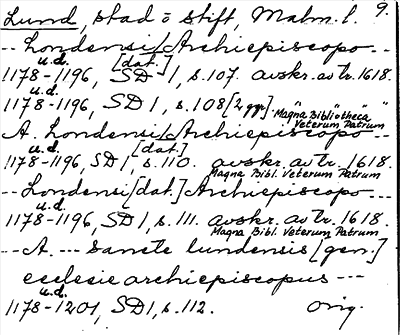 Lund, stad o stift, Malm. l. 9.
-- Londensi/Archiepiscopo --
u.d. [dat.]
1178-1196, SD 1, s. 107. avskr. av tr. 1618.
u.d.
1178-1196, SD 1, s. 108 [2 ggr] " " "
Magna Bibliotheca
Veterum Patrum
A. Londensi/Archiepiscopo --
u.d. [dat.]
1178-1196, SD 1, s. 110. avskr. av tr. 1618.
Magna Bibl. Veterum Patrum
-- Londensi [dat.] Archiepiscopo ---
u.d.
1178-1196, SD 1, s. 111. avskr. av tr. 1618.
Magna Bibl. Veterum Patrum
-- A. --- sancte lundensis [gen.]
ecclesie archiepiscopus ---
u.d.
1178-1201, SD 1, s. 112. Orig.